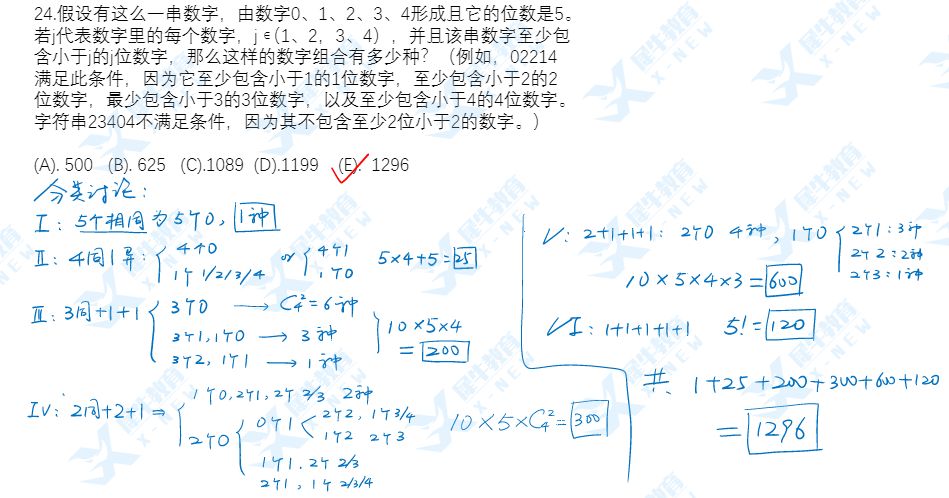 24.假设有这么一串数字，由数字0、1、2、3、4形成且它的位数是5。
若j代表数字里的每个数字，j∈(1、2，3、4），并且该串数字至少包
含小于j的j位数字，那么这样的数字组合有多少种？（例如，02214
满足此条件，因为它至少包含小于1的1位数字，至少包含小于2的2
位数字，最少包含小于3的3位数字，以及至少包含小于4的4位数字。
字符串23404不满足条件，因为其不包含至少2位小于2的数字。）
(A). 500 (B). 625 (C).1089 (D).1199 (E). 1296
分类讨论：
I：5个相同为5个0，1种
II：4同1异：
4个0
1个 1/2/3/4
or
4个1
1个0
5×4+5=25
III：3同+1+1
3个0 → C₄²=6种
3个1,1个0 → 3种
3个2, 1个1 → 1种
10×5×4
=200
IV：2同+2+1 ⇒
1个0,2个1,2个2/3 2种
2个0
0个1
2个2, 1个3/4
1个2 2个3
1个1. 2个2/3
2个1, 1个2/3/4
10×5×C₄²=300
V：2+1+1+1：2个0 4种，1个0
2个1：3种
2个2：2种
2个3：1种
10×5×4×3=600
VI：1+1+1+1+1 5!=120
共 1+25+200+300+600+120
=1296
犀牛教育
X-NEW